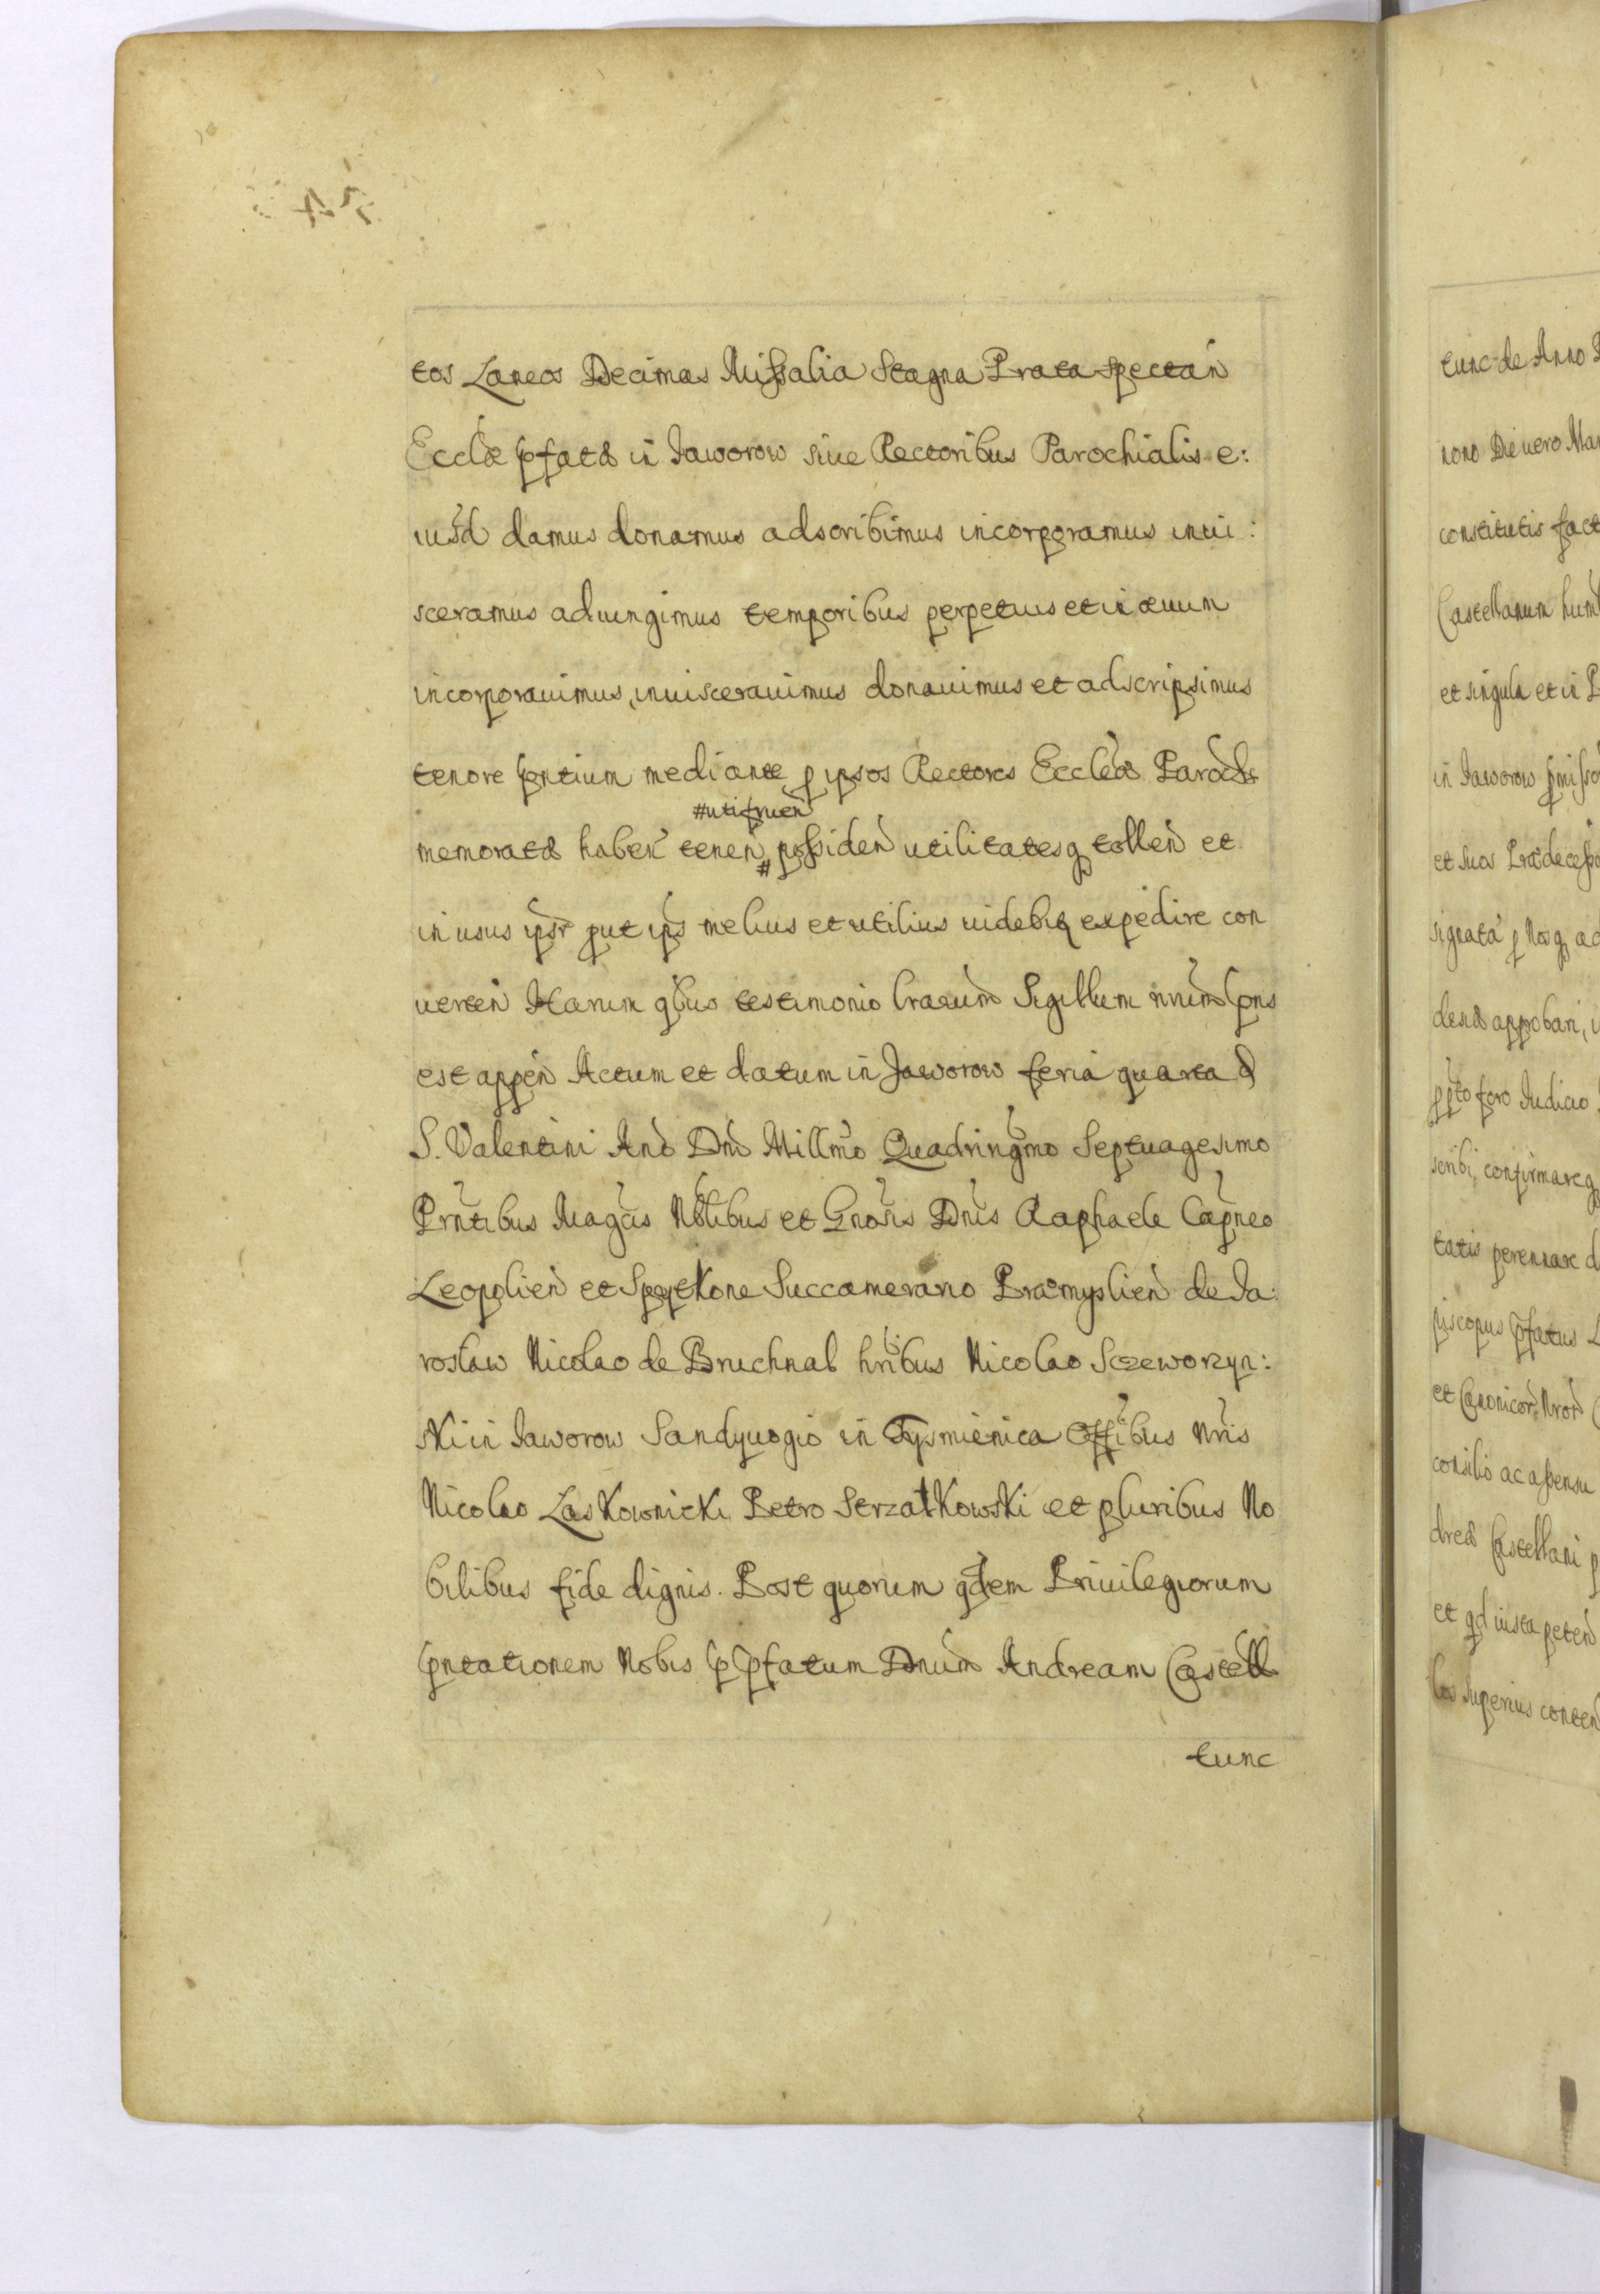 tos Laneos Decimas Missalia Stagna Prata spectan
Ecclæ pfatæ in Jaworow siue Rectoribus Parochialis e:
iusd damus donamus adscribimus incorporamus inui:
sceramus adiungimus temporibus perpetuis et in æuum
incorporauimus, inuiscerauimus donauimus et adscripsimus
tenore pntium mediante p ipsos Rectores Eccleæ Paroch
#utifruen
memoratæ haben tenen # possiden utilitatesq tollen et
in usus ipsr put ips melius et utilius uidebit expedire con
uerten Harum qbus testimonio lrarum Sigillum nrum pns
est appen Actum et datum in Jaworow feria quarta
S. Valentini Ano Dni Millmo Quadringmo Septuagesimo
Prntibus Magcis Nbilibus et Gnosis Dnis Raphaele Capneo
Leopolien et Spytkone Succamerario Præmyslien de Ja:
roslaw Nicolao de Bruchnal hribus Nicolao Sczeworzyn:
ski in Jaworow Sandyuogio in Tysmienica Offibus Nris
Nicolao Laskownicki Petro Strzałkowski et pluribus No
bilibus fide dignis. Post quorum qdem Priuilegiorum
pntationem Nobis p pfatum Dnum Andream Castell
tunc
tunc de Anno
nono Die uero Mar
constitutis fact
Castellanum hum
et singula et in P
in Jaworow pmisso
et suos Prædecesso
signata p Nosq ac
dendæ approbari,
ppto foro Judicio
scribi, confirmareq
tatis perennare d
piscopus pfatus L
et Canonicor Nror
consilio ac assensu
dreæ Castellani p
et qd iusta peten
los superius conten